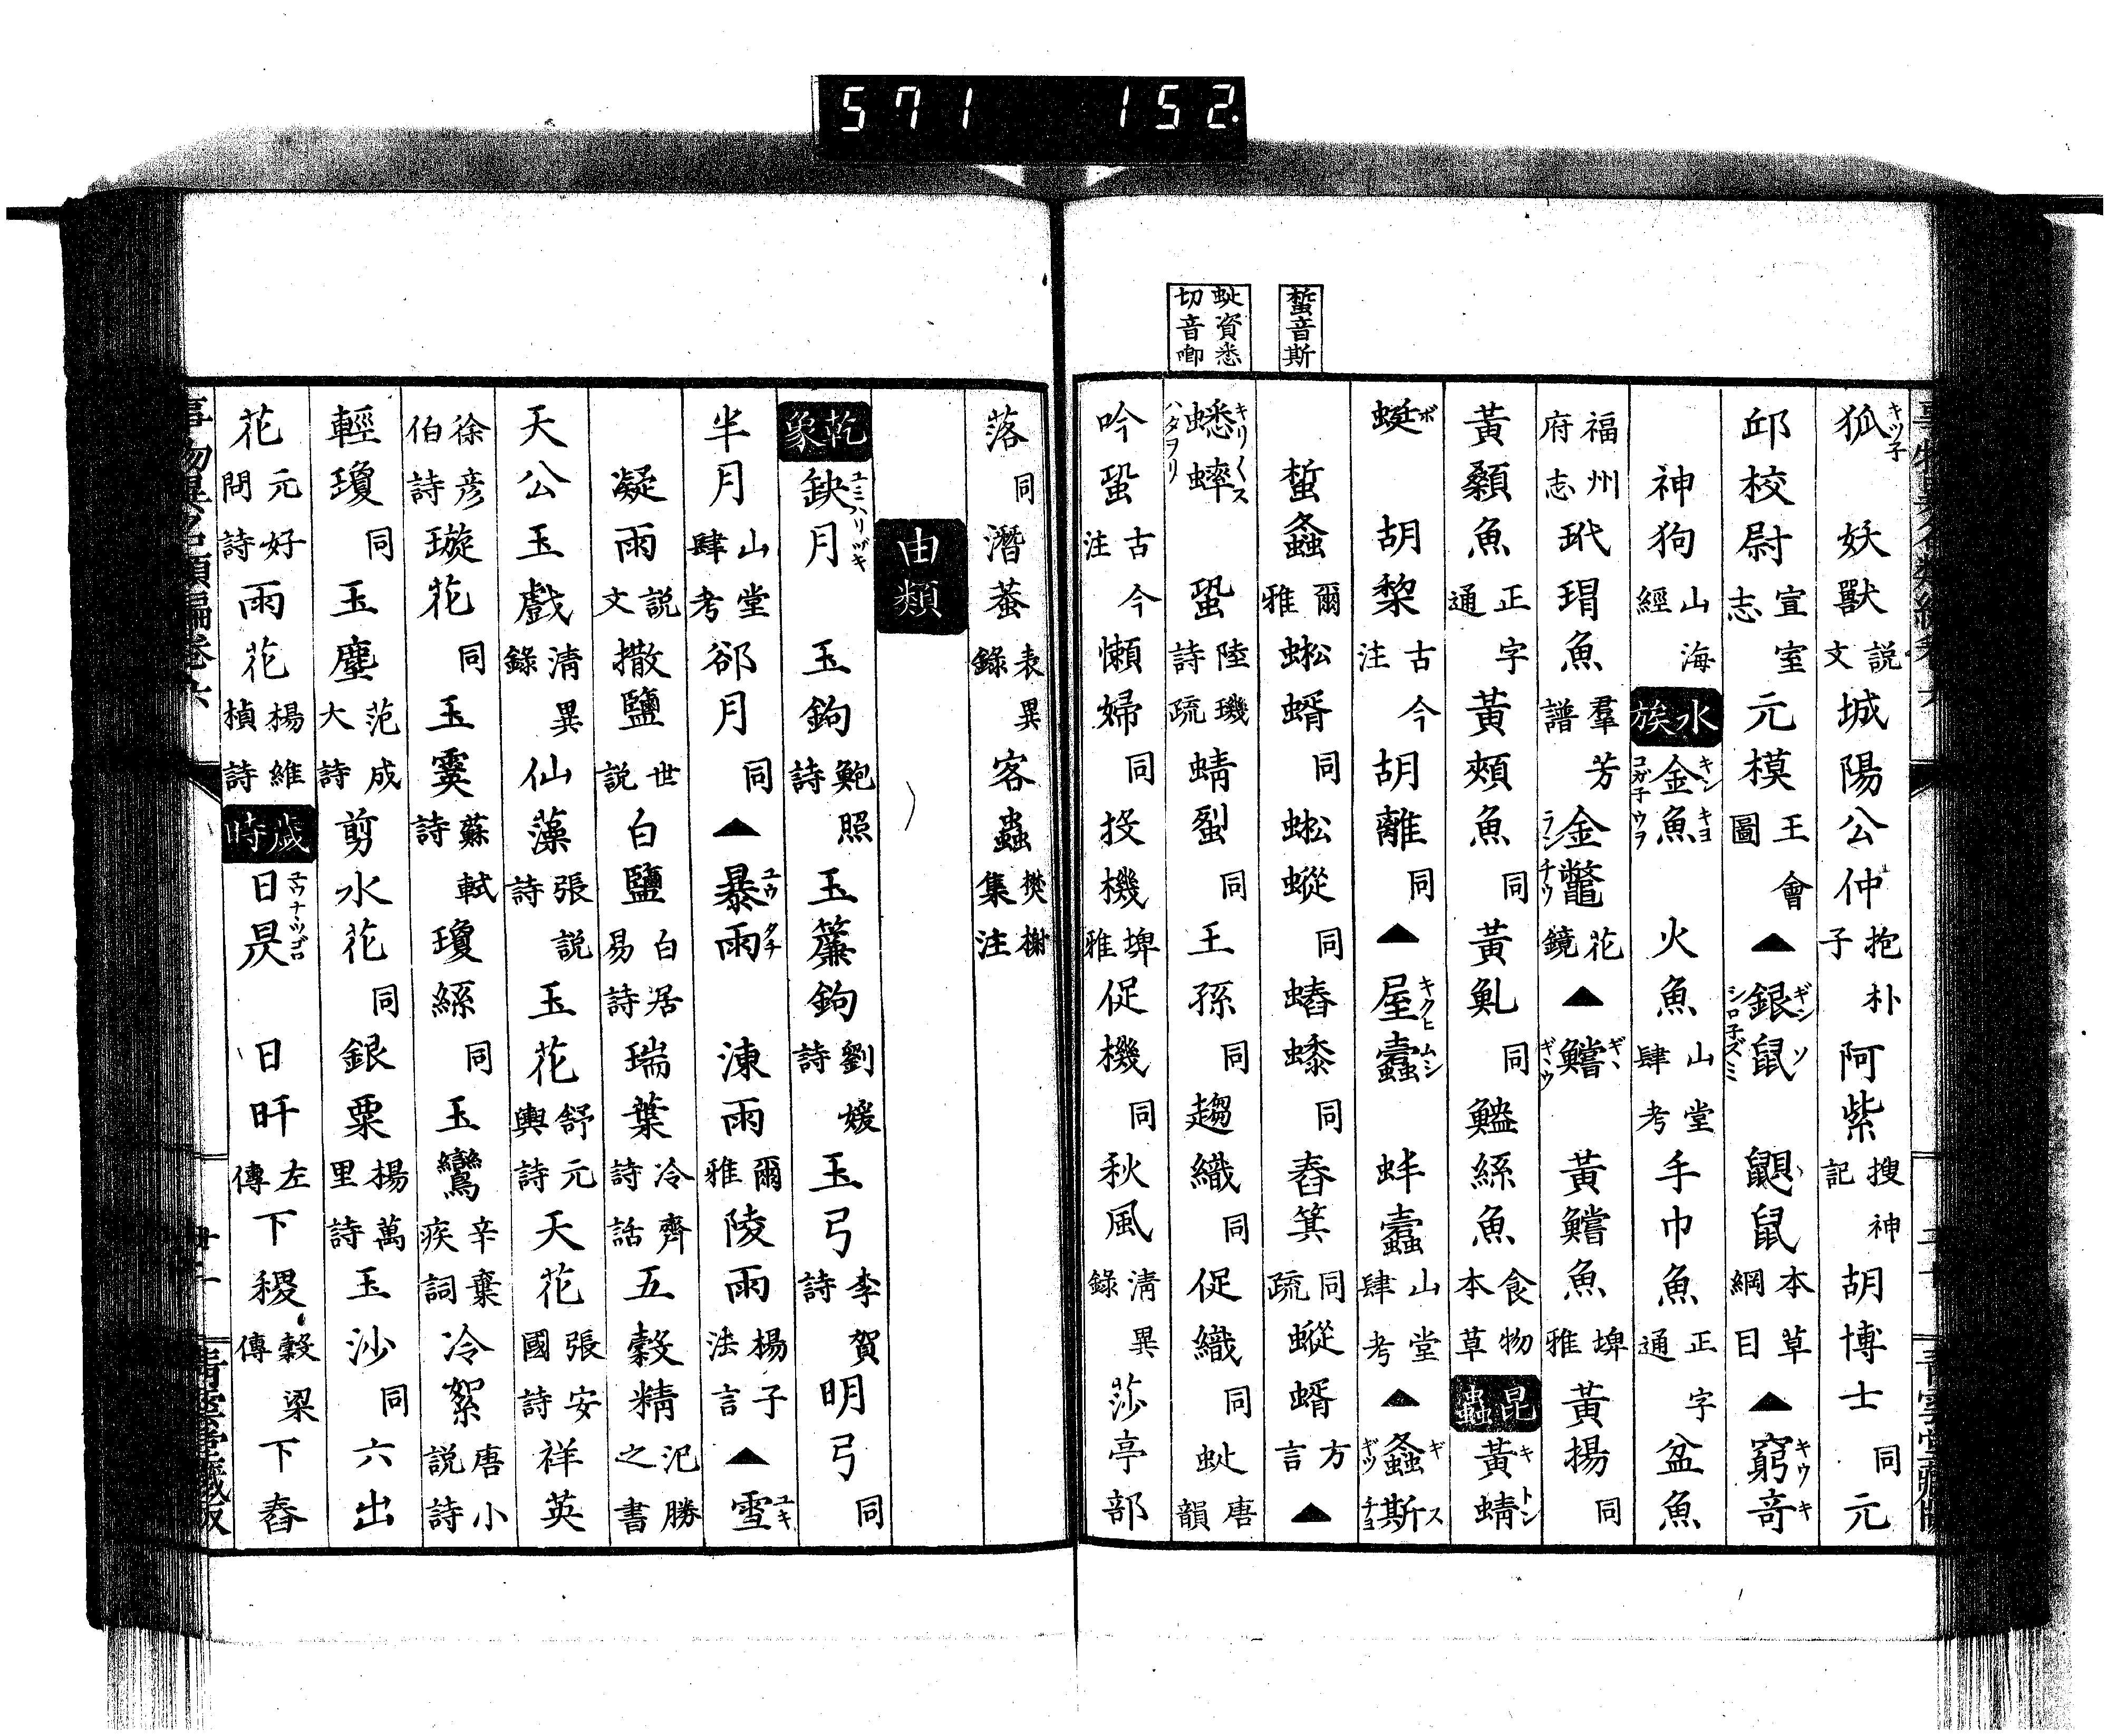 571 152.
蜤音斯
䖪資悉
切音喞
狐キツ子 妖獸說文城陽公仲抱朴子阿紫搜神記胡博士同元
邱校尉宣室志元模王會圖▲銀鼠ギンソシロ子ズミ 鼰鼠本草綱目▲窮奇キウキ
神狗山海經 水族 金魚キンキヨコガ子ウヲ 火魚山堂肆考手巾魚正字通盆魚
福州府志玳瑁魚羣芳譜金鼈ランチウ花鏡▲鱨ギヽギヽウ 黃鱨魚埤雅黃揚同
黃顙魚正字通黃頰魚同黃魤同䱀絲魚食物本草 昆蟲 黃蜻キトン
蜓ボ 胡棃古今注胡離同▲屋蠹キクヒムシ蚌蠹山堂肆考▲螽斯ギスギツチヨ
蜤螽爾雅蚣蝑同蚣蜙同蝽䗪同舂箕同疏蜙蝑方言▲
蟋蟀キリ〱スハタヲリ 蛩陸璣詩疏蜻蛚同王孫同趨織同促織同䖪唐韻
吟蛩古今注懶婦同投機埤雅促機同秋風清異錄莎亭部
落同潛䘆表異錄客蟲樊榭集注
由類
乾象 鈌月ユミハリヅキ 玉鉤鮑照詩玉簾鉤劉媛詩玉弓李賀詩明弓同
半月山堂肆考郤月同▲暴雨ユウタチ 涷雨爾雅陵雨楊子法言▲雪ユキ
凝雨說文撒鹽世說白鹽白居易詩瑞葉冷齊詩話五穀精氾勝之書
天公玉戲清異錄仙藻張說詩玉花舒元輿詩天花張安國詩祥英
徐彥伯詩璇花同玉霙蘇軾詩瓊絲同玉鸞辛棄疾詞冷絮唐小說詩
輕瓊同玉塵范成大詩剪水花同銀粟楊萬里詩玉沙同六出
花元好問詩雨花楊維楨詩 歲時 日昃エウナヽツゴロ 日旰左傳下稷穀梁傳下舂